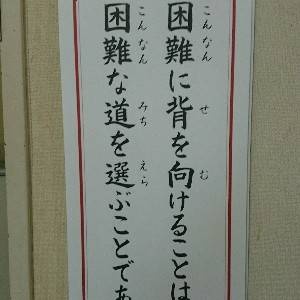 困難に背を向けることは
こんなん せ む
困難な道を選ぶことであ
こんなん みち えら